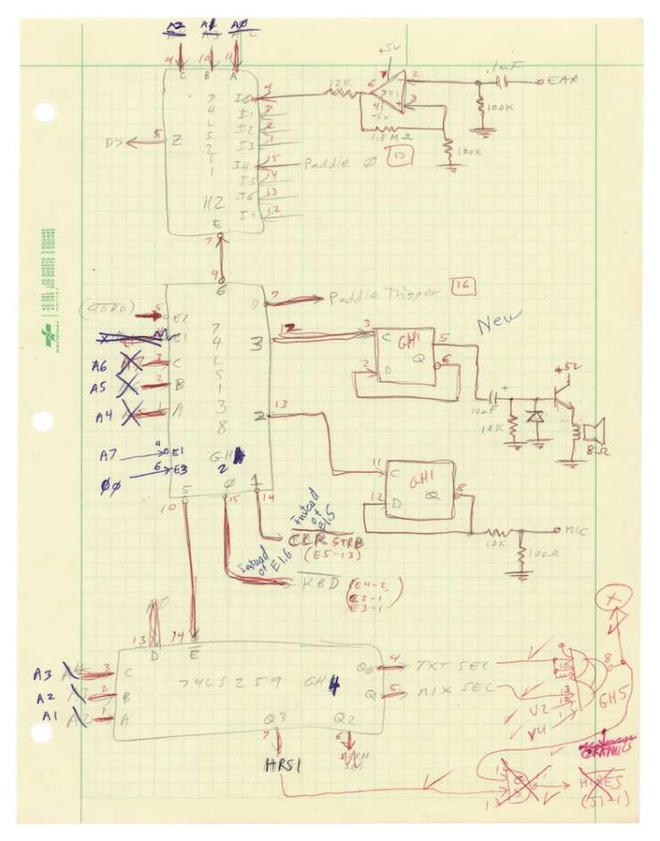 A2 A1 A0
9 10 11
C B A
+5V
.1uF
EAR
12K
6 7 2
741
4 3
-5V
100K
1.8MΩ
100K
15
D7 5 Z
7
4
L
S
2
5
1
H2
E
7
I0 4
I1 3
I2 2
I3 1
I4 15 Paddle Ø
I5 14
I6 13
I7 12
9
6
7 Paddle Trigger 16
New
5 E2
C
B
A
A6
A5
A4
A7 4 E1
ØØ 6 E3
7
4
L
S
1
3
8
GH
2
3
2 13
3 C GH1 5
Q 6
2 D
10uF
+
10K
+5V
8Ω
11 C GH1
12 D Q 8
MIC
12K
100Ω
5 Ø 1
10 15 14
instead of E1.5
CLR STRB
(E5-13)
instead of E1.6
KBD (E4-2,
E2-1
E3-1)
13 14
D E
A3 3 C
A2 2 B
A1 1 A
74LS259 GH4
Q0 4 TXT SEL
Q 5 MIX SEL
Q3 Q2
7 6
HRS1
V2
V4
8
GH5
X
GRAPHICS
13
HIRES
(J1-1)